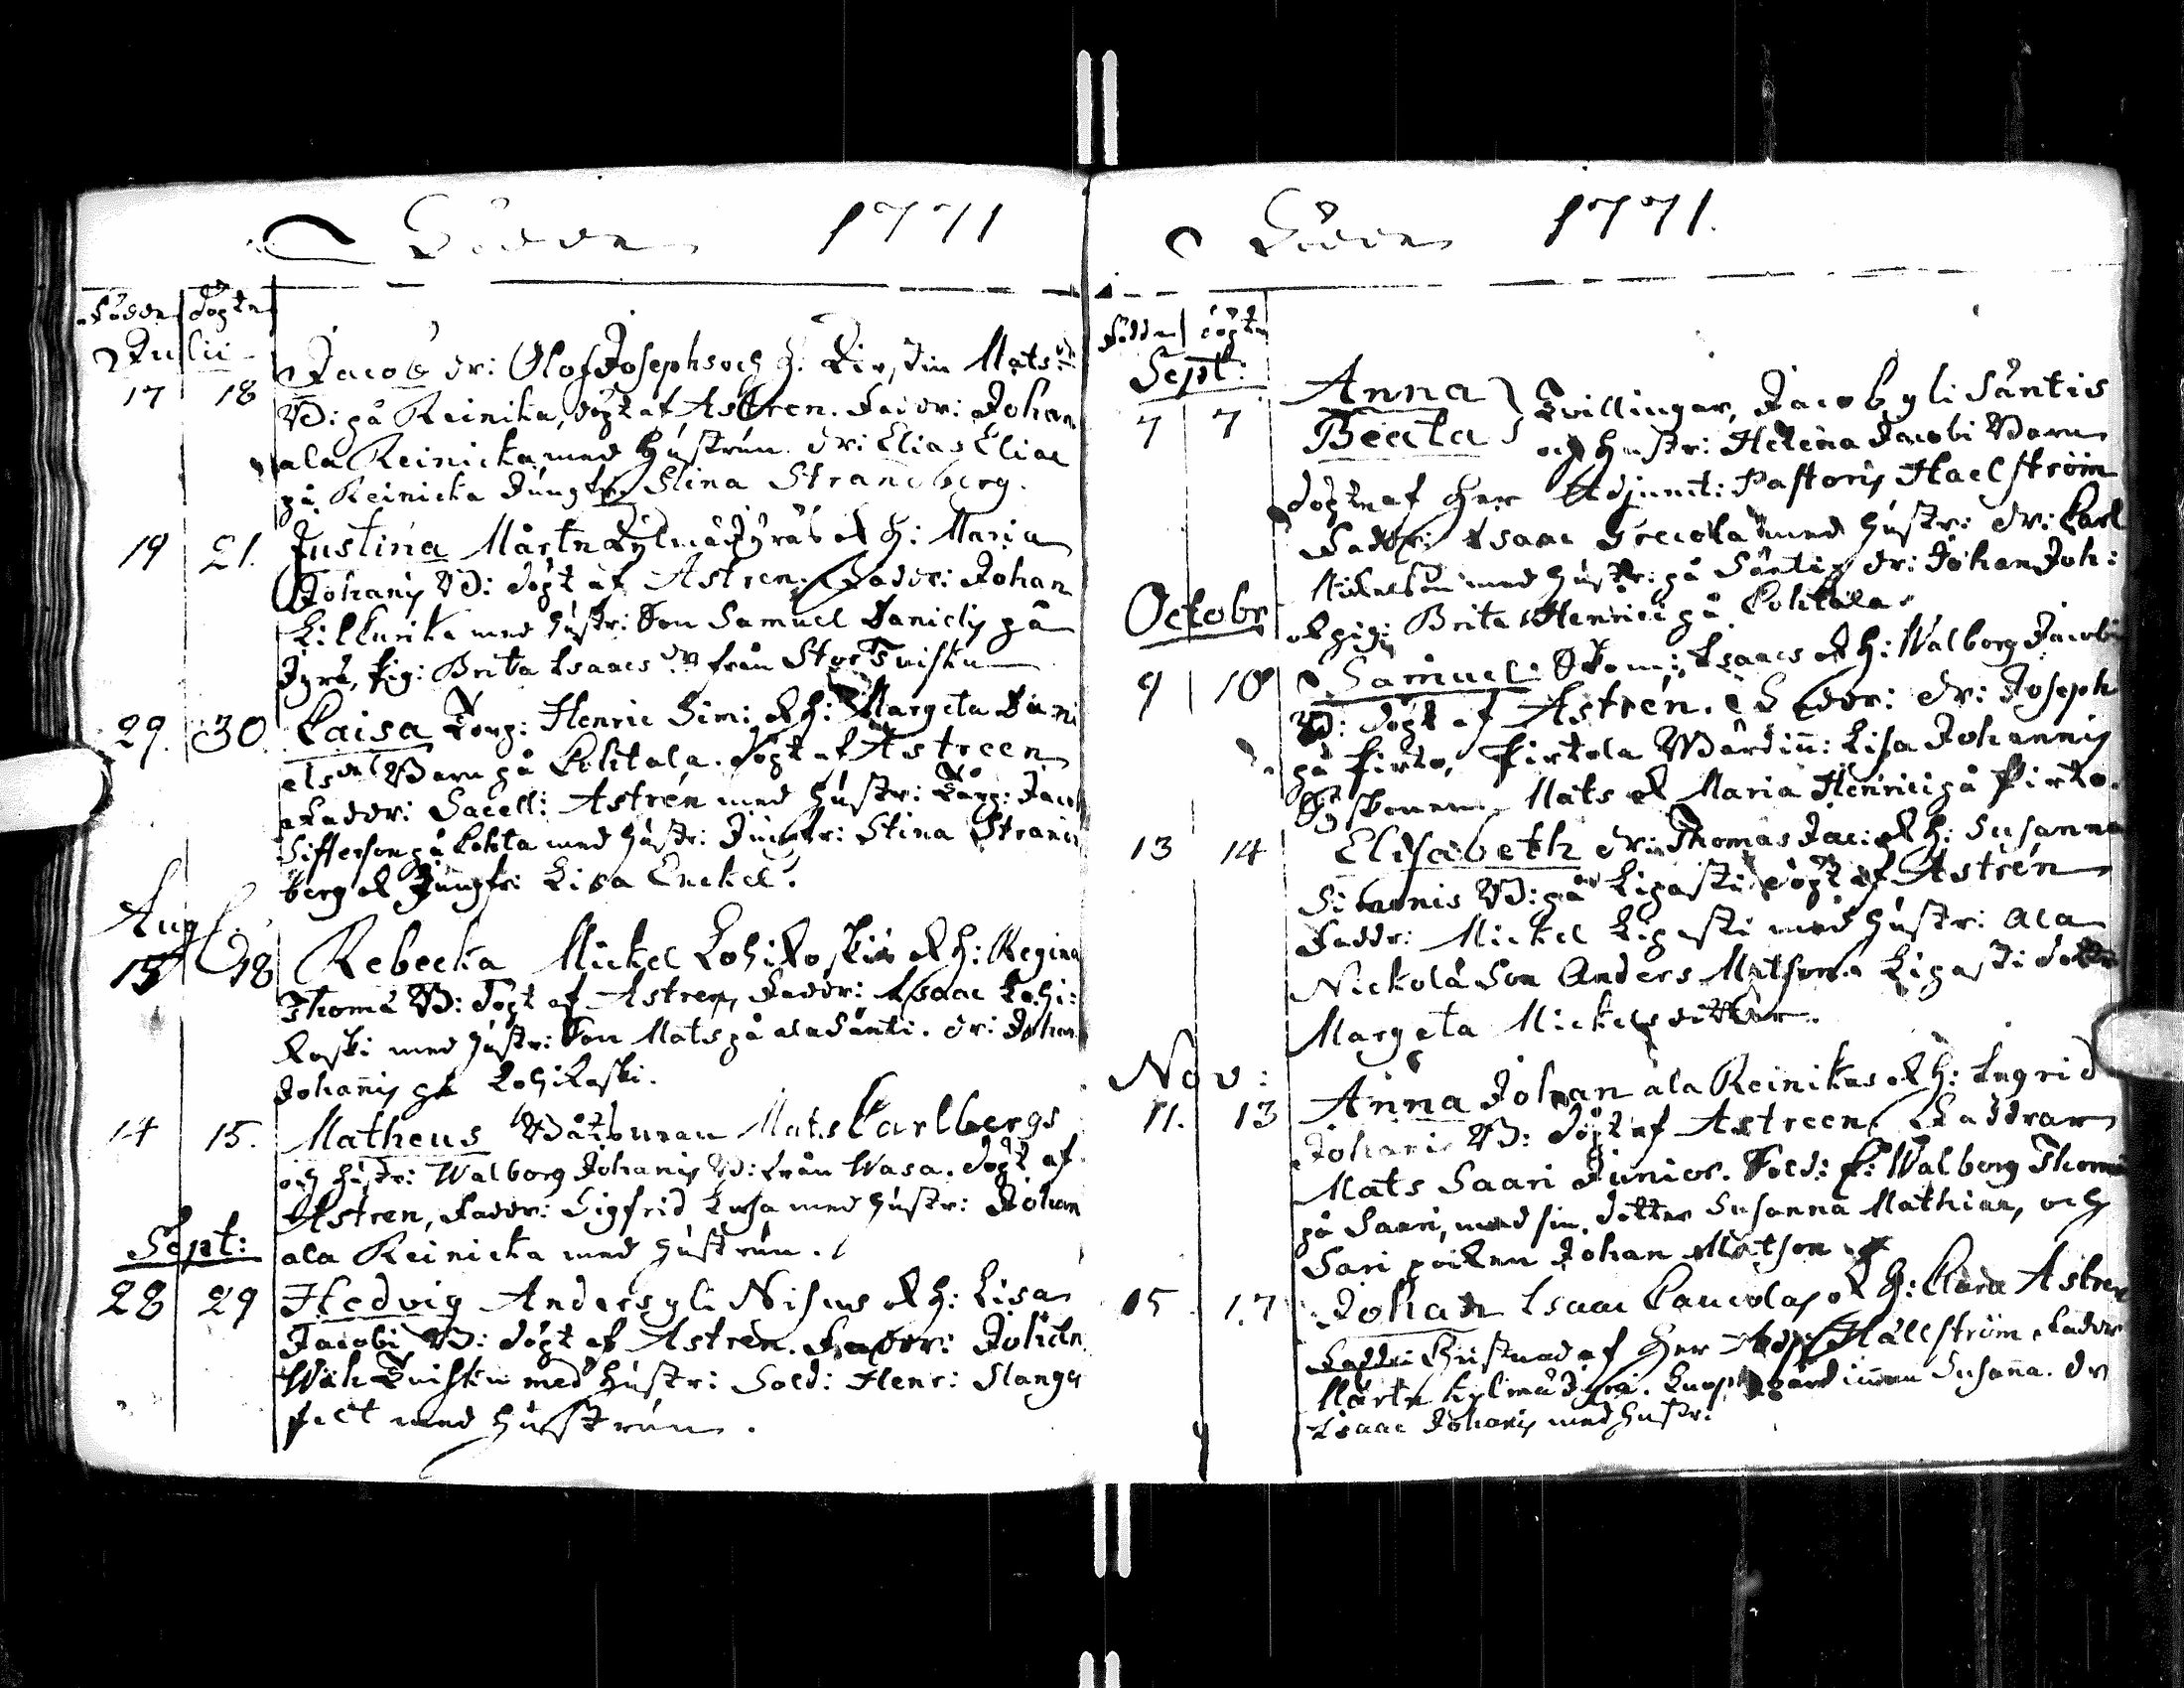 Födde 1771
Födde döpte
Julii
17 18 Jacob dr: Olof Josephs och h. Kirstin Mats dr
B: på Reinika, döpt af Astren. Faddr: Johan
ala Reinicka med hustrun. dr: Elias Eliae
på Reinicka Jungfr Stina Strandberg.
19 21. Justina Mårtn Kylmä Jyräs & h: Maria
Johanis B: döpt af Astren. Faddr: Johan
med hustr: Son Samuel Danielis på
Jyrä, pig: Brita Isaacs dr från Stor
29. 30 Caisa Torp: Henric Sim: & h: Margeta Dani
els dr Barn på Cokitala. döpt af Astreen
Faddr: Sacell: Astrén med hustr: Torp: Jacob
Sifferson på med hustr: Jungfr: Stina Strand
berg & Jungfr: Lisa Enckel.
Aug:
15 18 Rebecka Mickel Lohikoskis & h: Regina
Thomæ B: döpt af Astren, Faddr: Isaac Lohi:
koski med hustr: Son Mats på ala Sänti. dr: Johan
Johannis på Lohikoski.
14 15. Matheus Båtsman Mats Carlbergs
och hustr: Walborg Johanis B: från Wasa. döpt af
Astren, Faddr: Sigfrid med hustr: Johan
Sept: ala Reinicka med hustrun.
28 29 Hedvig Anders yli Nisus & h: Lisa
Jacobi B: döpt af Astren. Faddr: Johan
Wäh med hustr: Sold: Henr: Stange
felt med hustrun.
Födde 1771.
Födde döpte
Sept:
7 7 Anna
Beata } Tvillingar, Jacob yli Säntis
och hustr: Helena Jacobi Barn
döpte af Herr Adjunct: Pastoris Haelström
Faddr: Isaac med hustr: dr: Carl
Mickelson med hustr: på Sänti dr: Johan Joh:
& pig: Brita Henrici på Cokitala.
Octobr
9 10 Samuel Isaacs & h: Walborg Jacobi
B: döpt af Astrén. Faddr: dr: Joseph
på Pirto, Pirtola Wärdinn: Lisa Johannis
Mats & Maria Henrici på Pirto.
13 14 Elisabeth dr: Thomas Jac: & h: Susanna
Simonis B: på Ligasti döpt af Astrén
Faddr: Mickel Ligasti med hustr: ala
Nickolä Son Anders Matson. Ligasti dotter
Margeta Mickels dotter.
Nov:
11. 13 Anna Johan ala Reinikas & h: Ingrid
Johanis B: döpt af Astreen. Faddrar
Mats Saari Junior. Sold: E: Walborg Thomæ
på Saari, med sin dotter Susanna Mathiae, och
Sari poiken Johan Matson
15 17 Johan Isaac Laucolas & h: Clara Astren
Christnad af Herr Adj: Hällström, Faddr
Mårtn Kylmä Jyrä. wärdinnan Susanna. dr
Isaac Johanis med hustr: